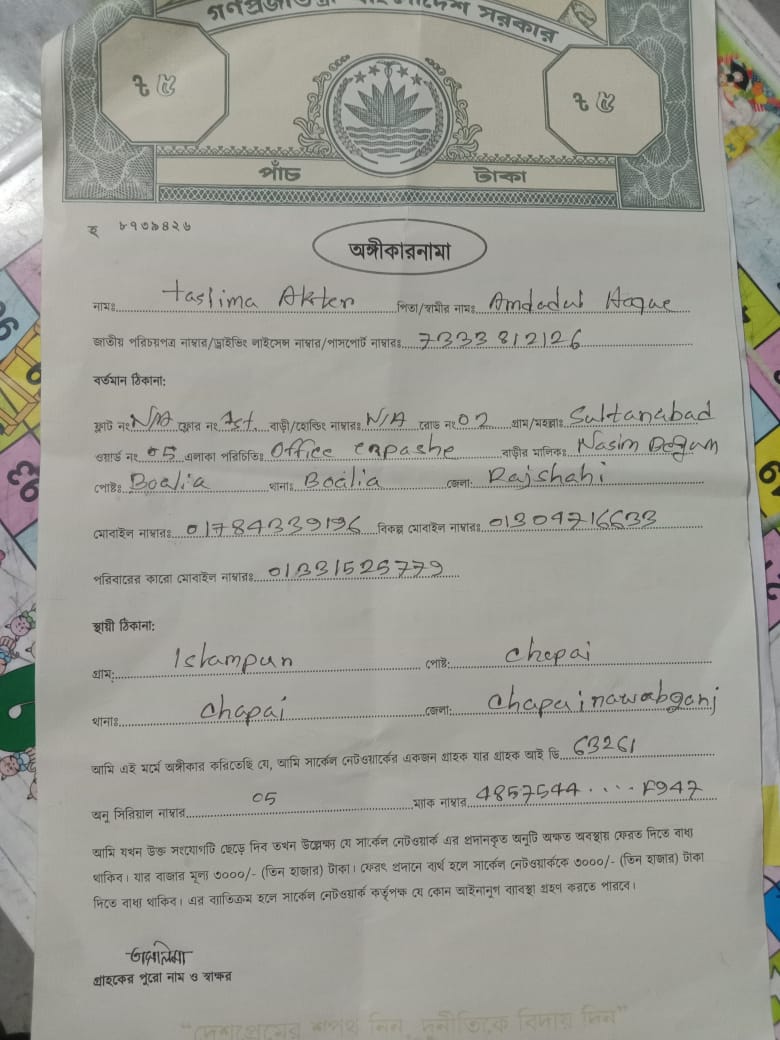 গণপ্রজাতন্ত্রী বাংলাদেশ সরকার
৳ ৫ ৳ ৫
পাঁচ টাকা
ছ ৮৭৩৯৪২৬
অঙ্গীকারনামা
নামঃ Taslima Akter পিতা/স্বামীর নামঃ Amdadul Hoque
জাতীয় পরিচয়পত্র নাম্বার/ড্রাইভিং লাইসেন্স নাম্বার/পাসপোর্ট নাম্বারঃ 7333812126
বর্তমান ঠিকানা:
ফ্লাট নং N/A ফ্লোর নং 1st. বাড়ী/হোল্ডিং নাম্বারঃ N/A রোড নং 02 গ্রাম/মহল্লাঃ Sultanabad
ওয়ার্ড নং 05 এলাকা পরিচিতিঃ Office erpashe বাড়ীর মালিকঃ Nasim Begum
পোষ্টঃ Boalia থানাঃ Boalia জেলা: Rajshahi
মোবাইল নাম্বারঃ 01784339196 বিকল্প মোবাইল নাম্বারঃ 01304716633
পরিবারের কারো মোবাইল নাম্বারঃ 01331525779
স্থায়ী ঠিকানা:
গ্রাম: Islampur পোষ্ট: Chapai
থানাঃ Chapai জেলা: Chapainawabganj
আমি এই মর্মে অঙ্গীকার করিতেছি যে, আমি সার্কেল নেটওয়ার্কের একজন গ্রাহক যার গ্রাহক আই ডি 63261
অনু সিরিয়াল নাম্বার 05 ম্যাক নাম্বার 4857544....F947
আমি যখন উক্ত সংযোগটি ছেড়ে দিব তখন উল্লেক্ষ্য যে সার্কেল নেটওয়ার্ক এর প্রদানকৃত অনুটি অক্ষত অবস্থায় ফেরত দিতে বাধ্য
থাকিব। যার বাজার মূল্য ৩০০০/- (তিন হাজার) টাকা। ফেরৎ প্রদানে ব্যর্থ হলে সার্কেল নেটওয়ার্ককে ৩০০০/- (তিন হাজার) টাকা
দিতে বাধ্য থাকিব। এর ব্যতিক্রম হলে সার্কেল নেটওয়ার্ক কর্তৃপক্ষ যে কোন আইনানুগ ব্যাবস্থা গ্রহণ করতে পারবে।
তাসলিমা
গ্রাহকের পুরো নাম ও স্বাক্ষর
"দেশপ্রেমের শপথ নিন, দুর্নীতিকে বিদায় দিন"